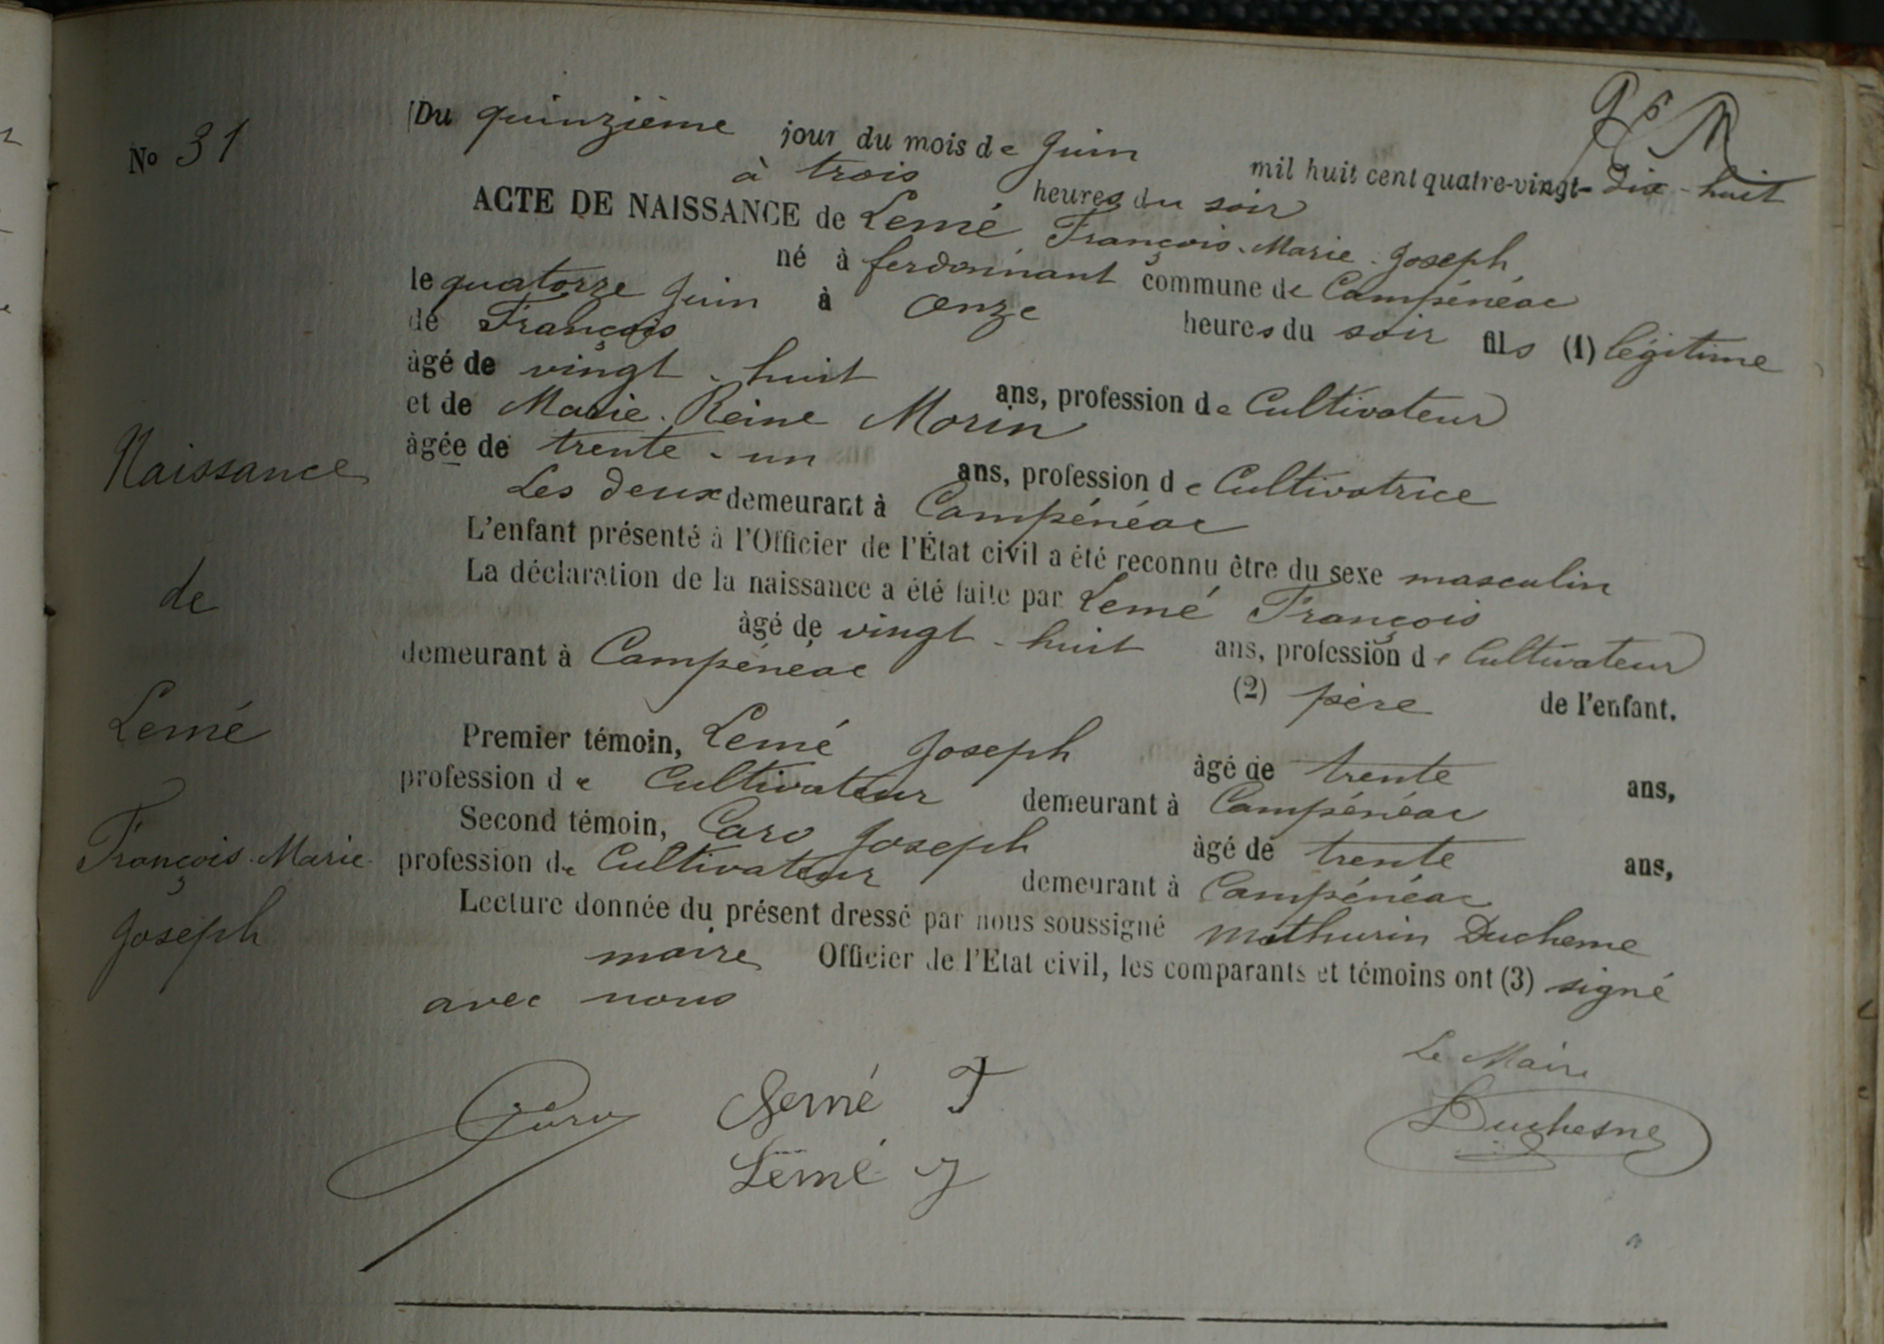 N° 31
Du quinzième jour du mois de Juin mil huit cent quatre-vingt-Dix-huit
à trois heures du soir
ACTE DE NAISSANCE de Lemé François-Marie-Joseph,
né à ferdonnant commune de Campénéac
le quatorze Juin à Onze heures du soir fils (1) légitime
de François
âgé de vingt-huit ans, profession de Cultivateur
et de Marie-Reine Morin
âgée de trente-un ans, profession de Cultivatrice
Les deux demeurant à Campénéac
L'enfant présenté à l'Officier de l'État civil a été reconnu être du sexe masculin
La déclaration de la naissance a été faite par Lemé François
âgé de vingt-huit ans, profession de Cultivateur
demeurant à Campénéac (2) père de l'enfant.
Premier témoin, Lemé Joseph âgé de trente ans,
profession de Cultivateur demeurant à Campénéac
Second témoin, Caro Joseph âgé de trente ans,
profession de Cultivateur demeurant à Campénéac
Lecture donnée du présent dressé par nous soussigné Mathurin Duchene
maire Officier de l'Etat civil, les comparants et témoins ont (3) signé
avec nous
Naissance
de
Lemé
François-Marie-
Joseph
Le Maire
Caro Lemé F Duchesne
Lemé J